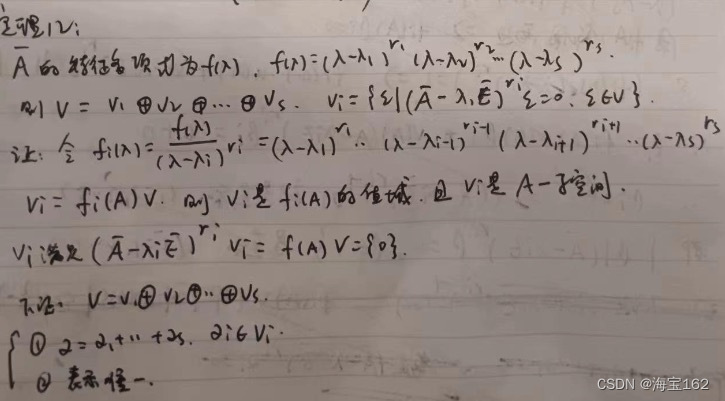 定理12:
Ā 的特征多项式为f(λ), f(λ)=(λ-λ₁)^r₁ (λ-λ₂)^r₂…(λ-λs)^rs.
则 V = V₁ ⊕ V₂ ⊕ … ⊕ Vs. Vi={ξ|(Ā-λiĒ)^ri ξ=0, ξ∈V}.
证: 令 fi(λ)=f(λ)/(λ-λi)^ri=(λ-λ₁)^r₁…(λ-λi-1)^ri-1 (λ-λi+1)^ri+1…(λ-λs)^rs
Vi = fi(A)V. 则 Vi是fi(A)的值域. 且 Vi是 A-子空间.
Vi满足(Ā-λiĒ)^ri Vi = f(A)V={0}.
下证. V=V₁⊕V₂⊕…⊕Vs.
① α=α₁+…+αs. αi∈Vi.
② 表示唯一.
CSDN @海宝162